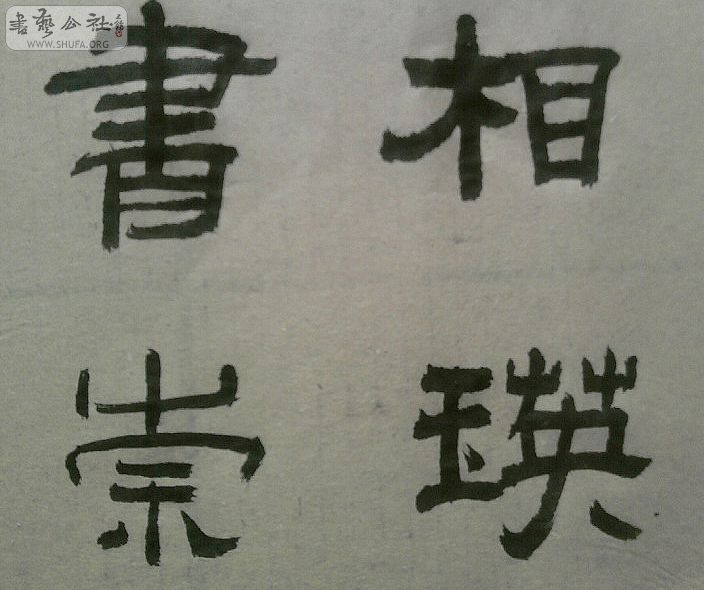 相瑛
書崇
書藝公社
WWW.SHUFA.ORG